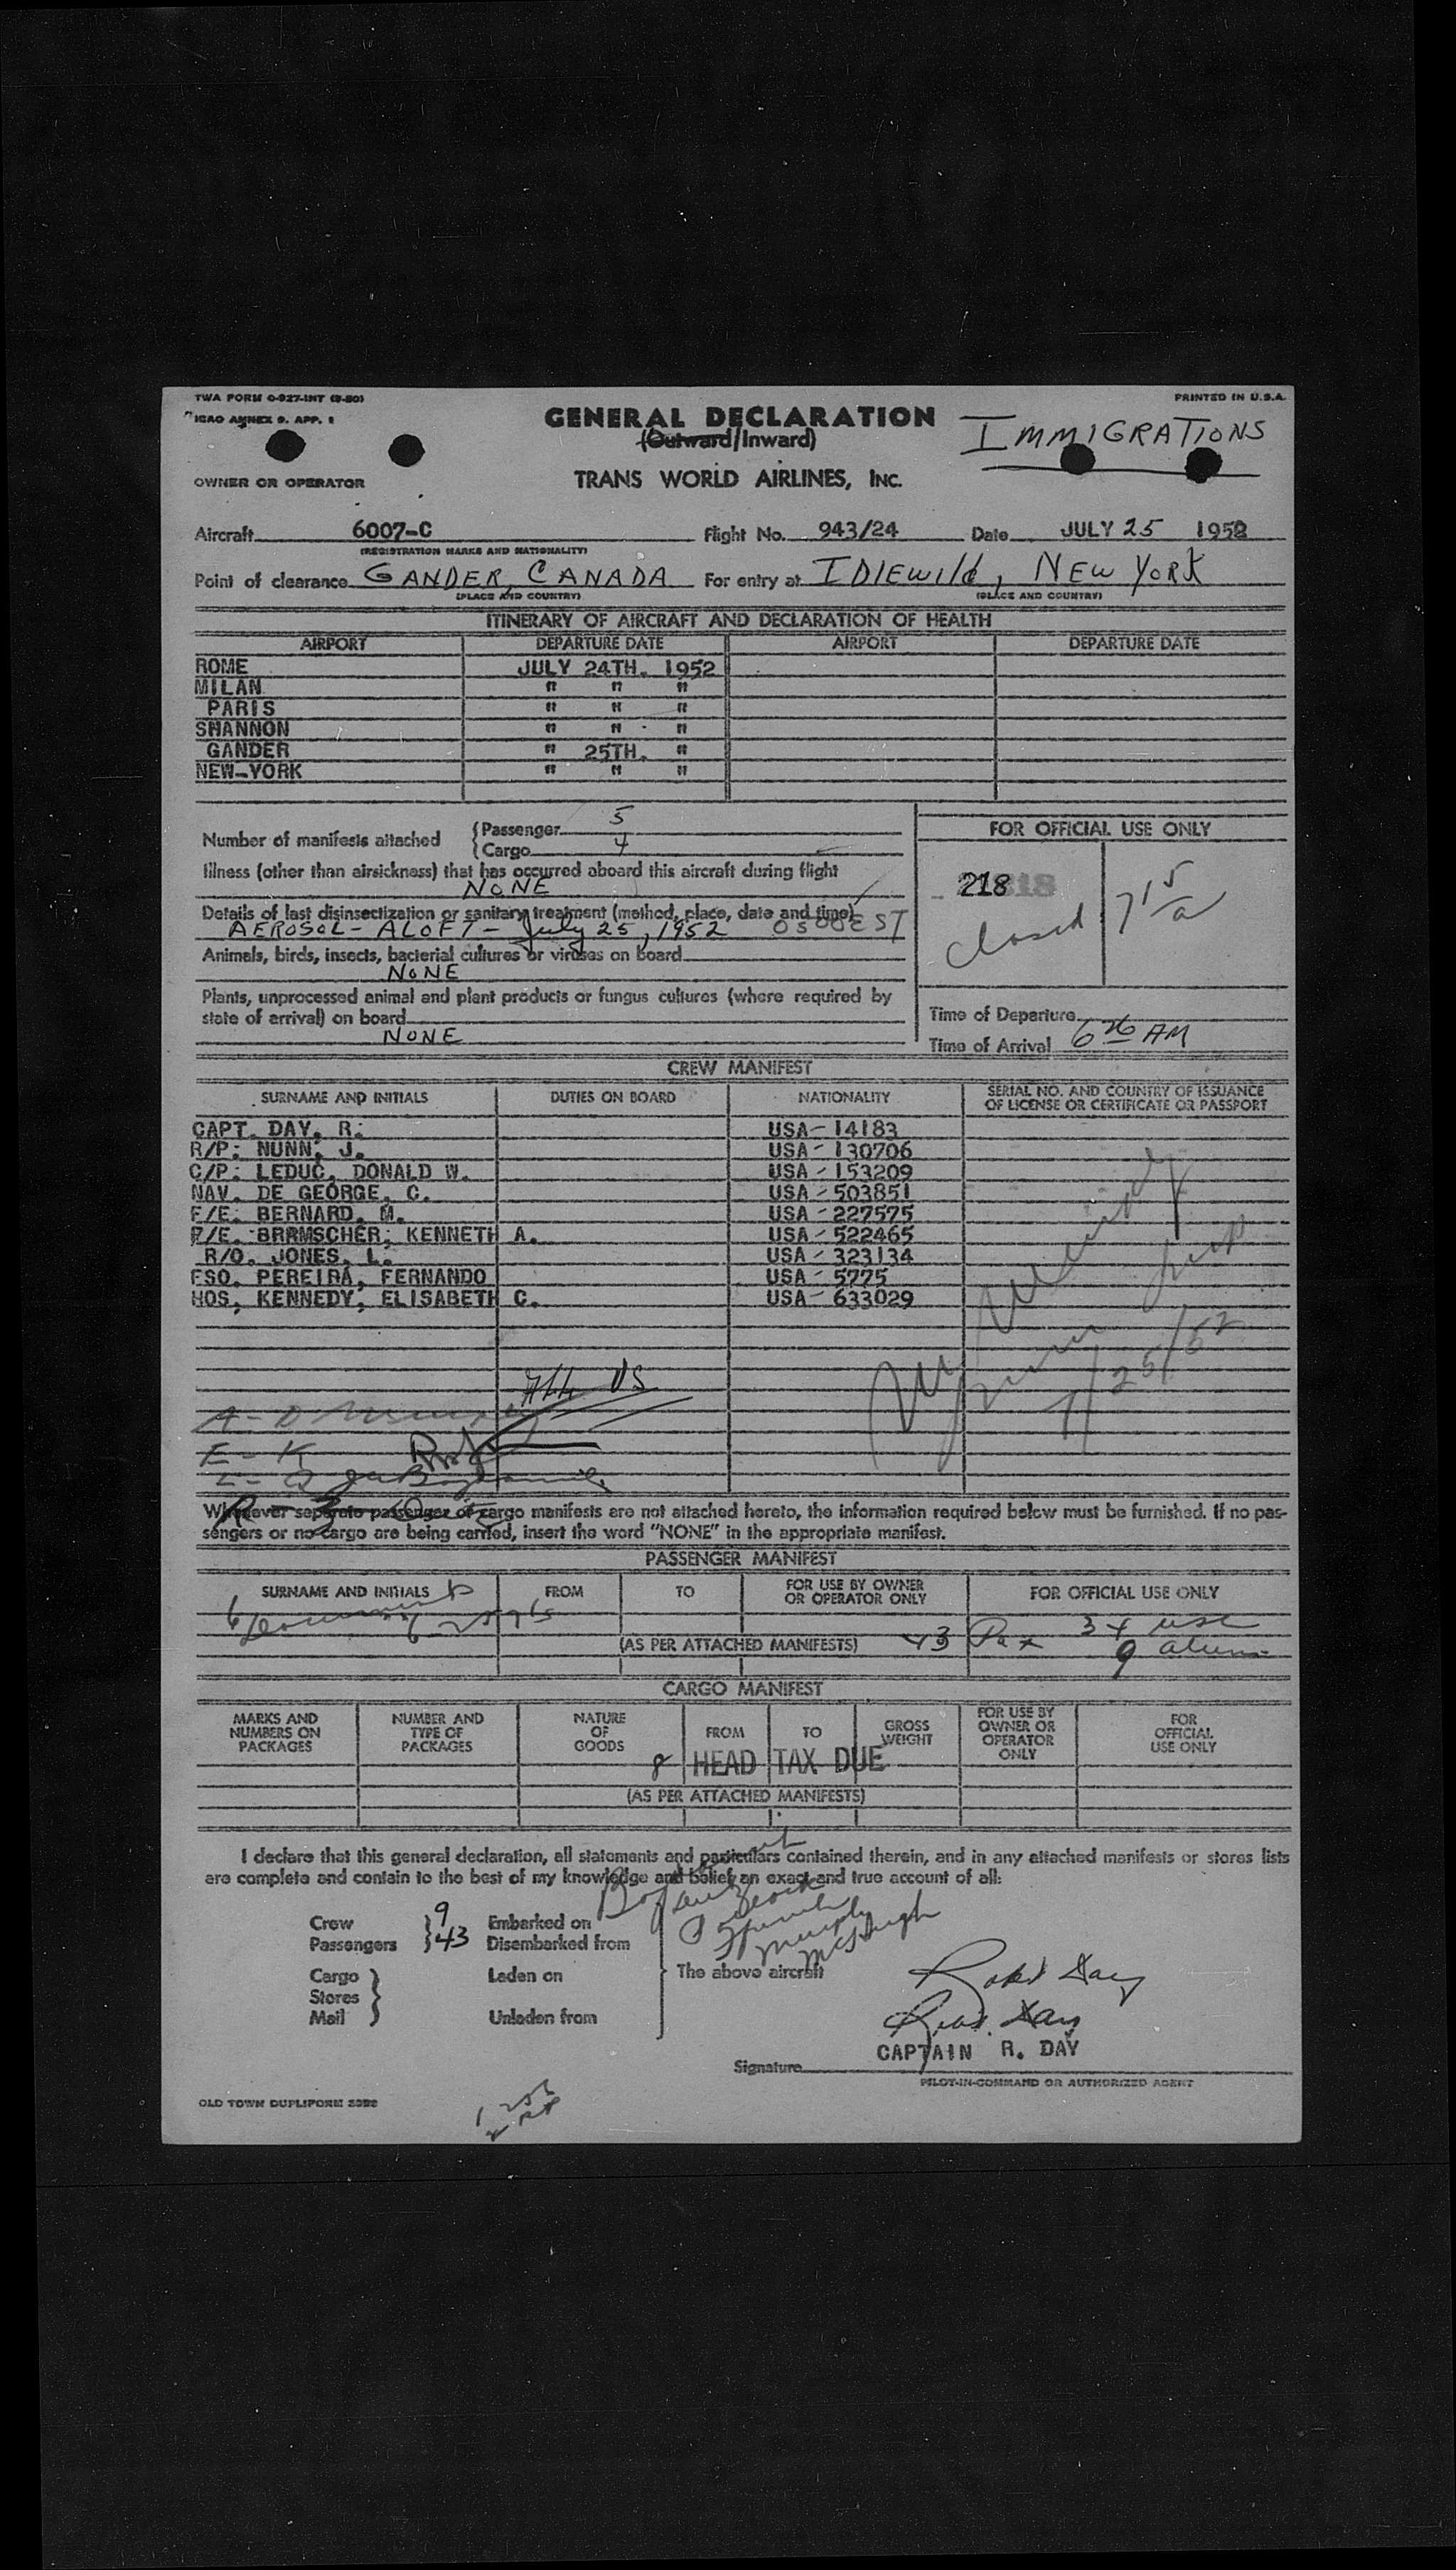 TWA FORM O-927-INT (9-50)
PRINTED IN U.S.A.
ICAO ANNEX 9. APP. 1
GENERAL DECLARATION
(Outward/Inward)
IMMIGRATIONS
OWNER OR OPERATOR
TRANS WORLD AIRLINES, INC.
Aircraft 6007-C Flight No. 943/24 Date JULY 25 1952
(REGISTRATION MARKS AND NATIONALITY)
Point of clearance GANDER, CANADA For entry at IDLEWild, NEW YORK
(PLACE AND COUNTRY) (PLACE AND COUNTRY)
ITINERARY OF AIRCRAFT AND DECLARATION OF HEALTH
AIRPORT DEPARTURE DATE AIRPORT DEPARTURE DATE
ROME JULY 24TH. 1952
MILAN " " "
PARIS " " "
SHANNON " " "
GANDER " 25TH. "
NEW-YORK " " "
Number of manifests attached {Passenger 5
{Cargo 4
FOR OFFICIAL USE ONLY
Illness (other than airsickness) that has occurred aboard this aircraft during flight
NONE
218 18
closed
7 15/a
Details of last disinsectization or sanitary treatment (method, place, date and time)
AEROSOL - ALOFT - July 25, 1952 0500EST
Animals, birds, insects, bacterial cultures or viruses on board
NONE
Plants, unprocessed animal and plant products or fungus cultures (where required by
state of arrival) on board
NONE
Time of Departure
Time of Arrival 6 26 AM
CREW MANIFEST
SURNAME AND INITIALS DUTIES ON BOARD NATIONALITY SERIAL NO. AND COUNTRY OF ISSUANCE
OF LICENSE OR CERTIFICATE OR PASSPORT
CAPT. DAY, R. USA- 14183
R/P. NUNN, J. USA - 130706
C/P. LEDUC, DONALD W. USA - 153209
NAV. DE GEORGE, C. USA - 503851
F/E. BERNARD, M. USA - 227575
F/E. BRRMSCHER, KENNETH A. USA - 522465
R/O. JONES, L. USA - 323134
FSO. PEREIRA, FERNANDO USA - 5775
HOS, KENNEDY, ELISABETH C. USA - 633029
7/25/52
All US
A - D
E - K
L - Q
R - Z
Whenever separate passenger or cargo manifests are not attached hereto, the information required below must be furnished. If no pas-
sengers or no cargo are being carried, insert the word "NONE" in the appropriate manifest.
PASSENGER MANIFEST
SURNAME AND INITIALS FROM TO FOR USE BY OWNER
OR OPERATOR ONLY FOR OFFICIAL USE ONLY
34 usc
(AS PER ATTACHED MANIFESTS) 43 Pax 9 aliens
CARGO MANIFEST
MARKS AND
NUMBERS ON
PACKAGES
NUMBER AND
TYPE OF
PACKAGES
NATURE
OF
GOODS
FROM
TO
GROSS
WEIGHT
FOR USE BY
OWNER OR
OPERATOR
ONLY
FOR
OFFICIAL
USE ONLY
8 HEAD TAX DUE
(AS PER ATTACHED MANIFESTS)
I declare that this general declaration, all statements and particulars contained therein, and in any attached manifests or stores lists
are complete and contain to the best of my knowledge and belief an exact and true account of all:
Crew 9 Embarked on
Passengers 43 Disembarked from
Murphy
McHugh
Cargo Laden on The above aircraft
Stores
Mail Unladen from
Robt Day
Robt. Day
CAPTAIN R. DAY
Signature
PILOT-IN-COMMAND OR AUTHORIZED AGENT
OLD TOWN DUPLIFORM